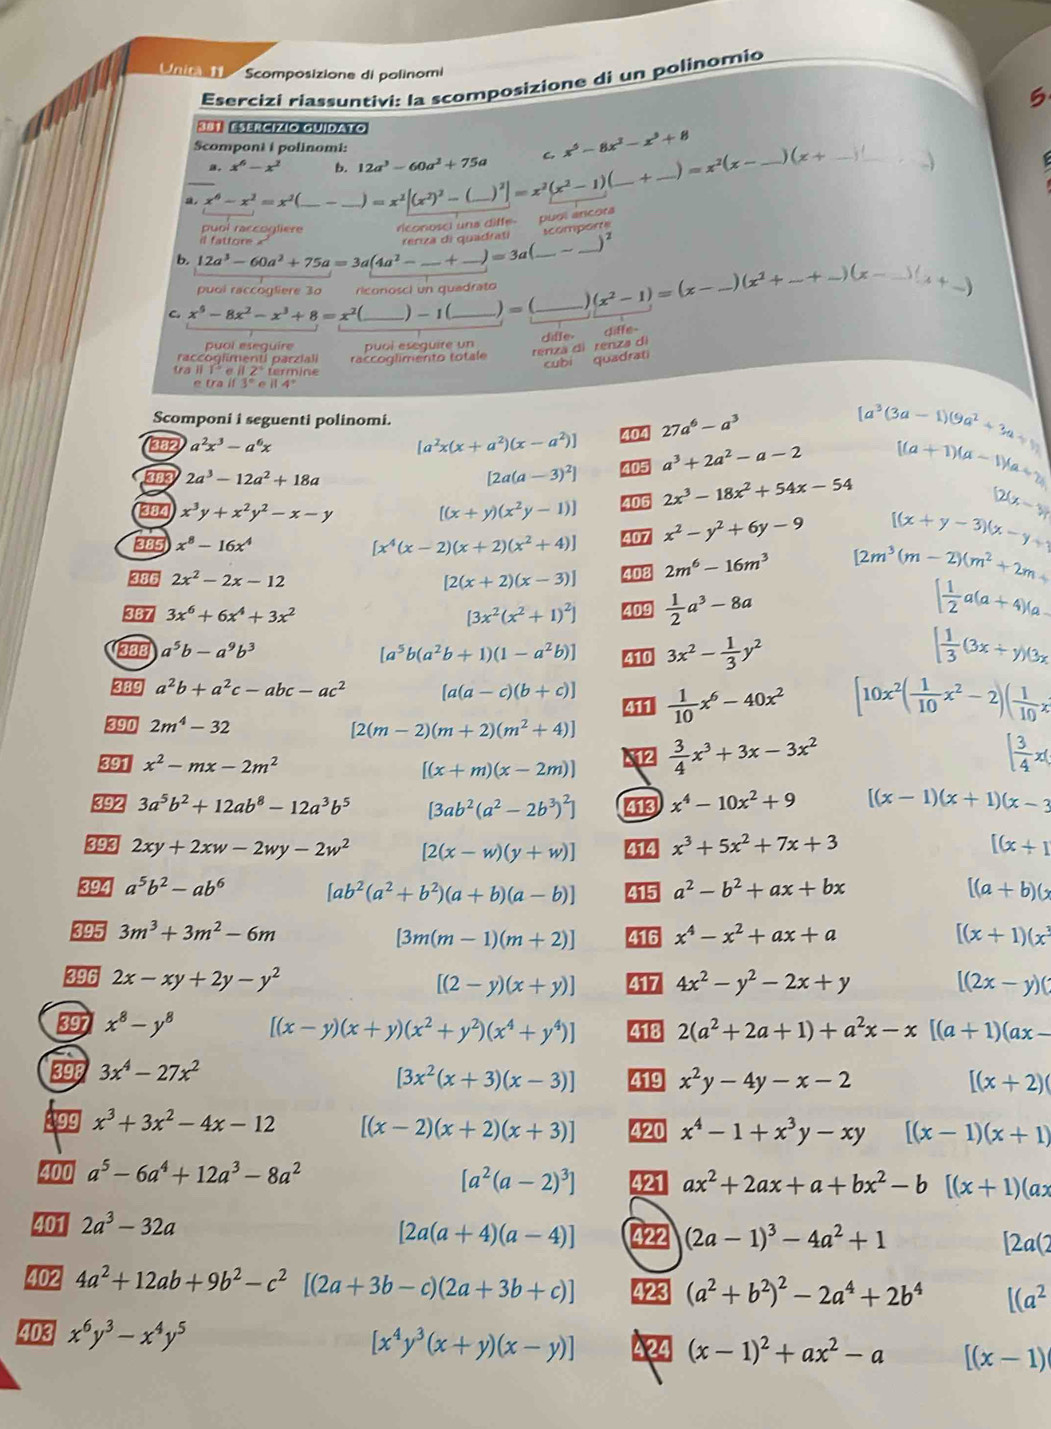 Unità 11 Scomposizione di polinomi
Esercizi riassuntivi: la scomposizione di un polinomio
5.
381 ESERCIZIO GUIDATO
Scomponi i polinomi:
a. x⁶ − x² b. 12a³ − 60a² + 75a c. x⁵ − 8x² − x³ + 8
a. x⁶ − x² = x²(__ − __) = x²[(x²)² − (__)²] = x²(x² − 1)(__ + __) = x²(x − __)(x +
puoi raccogliere il fattore x²
riconosci una differenza di quadrati
puoi ancora scomporre
b. 12a³ − 60a² + 75a = 3a(4a² − __ + __) = 3a(__ − __)²
puoi raccogliere 3a
riconosci un quadrato
c. x⁵ − 8x² − x³ + 8 = x²(____) − 1(____) = (____)(x² − 1) = (x − __)(x² + __ + __)(x − __)(x + __)
puoi eseguire raccoglimenti parziali tra il 1° e il 2° termine e tra il 3° e il 4°
puoi eseguire un raccoglimento totale
differenza di cubi
differenza di quadrati
Scomponi i seguenti polinomi.
382 a²x³ − a⁶x [a²x(x + a²)(x − a²)]
383 2a³ − 12a² + 18a [2a(a − 3)²]
384 x³y + x²y² − x − y [(x + y)(x²y − 1)]
385 x⁸ − 16x⁴ [x⁴(x − 2)(x + 2)(x² + 4)]
386 2x² − 2x − 12 [2(x + 2)(x − 3)]
387 3x⁶ + 6x⁴ + 3x² [3x²(x² + 1)²]
388 a⁵b − a⁹b³ [a⁵b(a²b + 1)(1 − a²b)]
389 a²b + a²c − abc − ac² [a(a − c)(b + c)]
390 2m⁴ − 32 [2(m − 2)(m + 2)(m² + 4)]
391 x² − mx − 2m² [(x + m)(x − 2m)]
392 3a⁵b² + 12ab⁸ − 12a³b⁵ [3ab²(a² − 2b³)²]
393 2xy + 2xw − 2wy − 2w² [2(x − w)(y + w)]
394 a⁵b² − ab⁶ [ab²(a² + b²)(a + b)(a − b)]
395 3m³ + 3m² − 6m [3m(m − 1)(m + 2)]
396 2x − xy + 2y − y² [(2 − y)(x + y)]
397 x⁸ − y⁸ [(x − y)(x + y)(x² + y²)(x⁴ + y⁴)]
398 3x⁴ − 27x² [3x²(x + 3)(x − 3)]
399 x³ + 3x² − 4x − 12 [(x − 2)(x + 2)(x + 3)]
400 a⁵ − 6a⁴ + 12a³ − 8a² [a²(a − 2)³]
401 2a³ − 32a [2a(a + 4)(a − 4)]
402 4a² + 12ab + 9b² − c² [(2a + 3b − c)(2a + 3b + c)]
403 x⁶y³ − x⁴y⁵ [x⁴y³(x + y)(x − y)]
404 27a⁶ − a³ [a³(3a − 1)(9a² + 3a +
405 a³ + 2a² − a − 2 [(a + 1)(a − 1)(a + 2)
406 2x³ − 18x² + 54x − 54 [2(x − 3)
407 x² − y² + 6y − 9 [(x + y − 3)(x − y +
408 2m⁶ − 16m³ [2m³(m − 2)(m² + 2m +
409 1/2 a³ − 8a [1/2 a(a + 4)(a
410 3x² − 1/3 y² [1/3 (3x + y)(3x
411 1/10 x⁶ − 40x² [10x²(1/10 x² − 2)(1/10 x
412 3/4 x³ + 3x − 3x² [3/4 x(
413 x⁴ − 10x² + 9 [(x − 1)(x + 1)(x − 3
414 x³ + 5x² + 7x + 3 [(x + 1
415 a² − b² + ax + bx [(a + b)(
416 x⁴ − x² + ax + a [(x + 1)(x³
417 4x² − y² − 2x + y [(2x − y)(
418 2(a² + 2a + 1) + a²x − x [(a + 1)(ax −
419 x²y − 4y − x − 2 [(x + 2)(
420 x⁴ − 1 + x³y − xy [(x − 1)(x + 1)
421 ax² + 2ax + a + bx² − b [(x + 1)(ax
422 (2a − 1)³ − 4a² + 1 [2a(2
423 (a² + b²)² − 2a⁴ + 2b⁴ [(a²
424 (x − 1)² + ax² − a [(x − 1)(